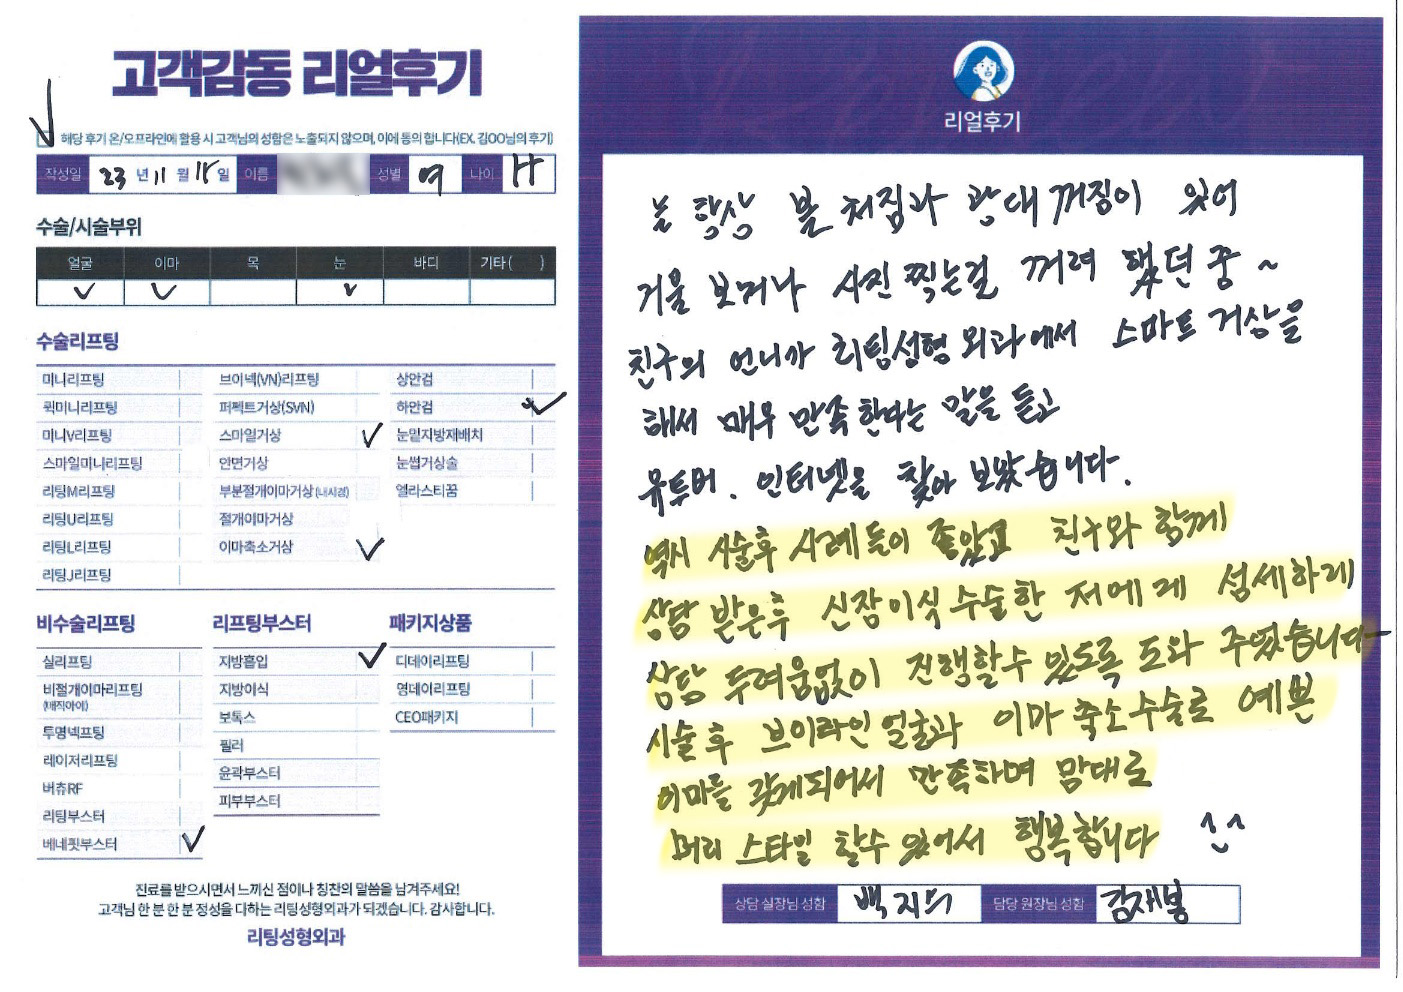 고객감동 리얼후기
해당 후기 온/오프라인에 활용 시 고객님의 성함은 노출되지 않으며, 이에 동의 합니다(EX. 김OO님의 후기)
작성일 23 년 11 월 일 이름 성별 여 나이
수술/시술부위
얼굴 이마 목 눈 바디 기타( )
수술리프팅
미니리프팅
퀵미니리프팅
미니V리프팅
스마일미니리프팅
리팅M리프팅
리팅U리프팅
리팅L리프팅
리팅J리프팅
브이넥(VN)리프팅
퍼펙트거상(SVN)
스마일거상
안면거상
부분절개이마거상(내시경)
절개이마거상
이마축소거상
상안검
하안검
눈밑지방재배치
눈썹거상술
엘라스티꿈
비수술리프팅
실리프팅
비절개이마리프팅
(매직아이)
투명넥프팅
레이저리프팅
버츄RF
리팅부스터
베네핏부스터
리프팅부스터
지방흡입
지방이식
보톡스
필러
윤곽부스터
피부부스터
패키지상품
디데이리프팅
영데이리프팅
CEO패키지
진료를 받으시면서 느끼신 점이나 칭찬의 말씀을 남겨주세요!
고객님 한 분 한 분 정성을 다하는 리팅성형외과가 되겠습니다. 감사합니다.
리팅성형외과
리얼후기
늘 항상 볼 처짐과 광대 꺼짐이 있어
거울 보거나 사진 찍는걸 꺼려 했던 중~
친구의 언니가 리팅성형외과에서 스마트 거상을
해서 매우 만족한다는 말을 듣고
유투버. 인터넷을 찾아 보았습니다.
역시 시술후 사례들이 좋았고 친구와 함께
상담 받은후 신장이식수술한 저에게 섬세하게
상담 두려움없이 진행할수 있도록 도와 주었습니다
시술 후 브이라인 얼굴과 이마 축소수술로 예쁜
이마를 갖게되어서 만족하며 맘대로
머리 스타일 할수 있어서 행복합니다 ^^
상담 실장님 성함 백지의 담당 원장님 성함 김재봉